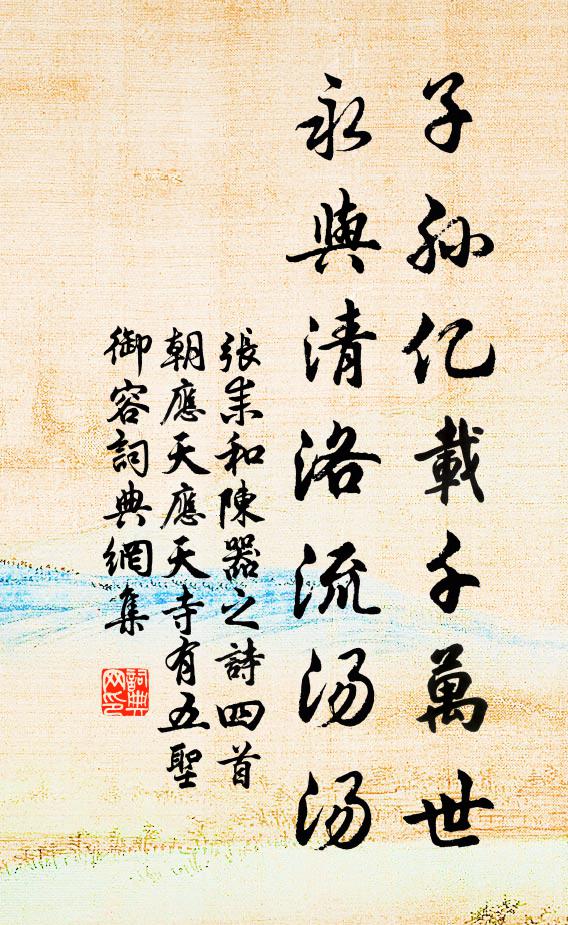 子孙亿載千萬世
永與清洛流汤汤
張耒和陳器之詩四首
朝應天應天寺有五聖
御容詞典網集
詞典网印